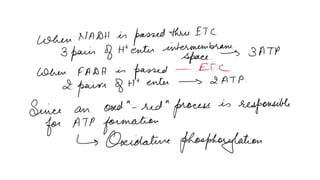 When NADH is passed thru ETC
3 pairs of H⁺ enter intermembrane space → 3 ATP
When FADH is passed — ETC
2 pairs of H⁺ enter → 2 ATP
Since an oxdⁿ-redⁿ process is responsible
for ATP formation
↳ Oxidative phosphorylation